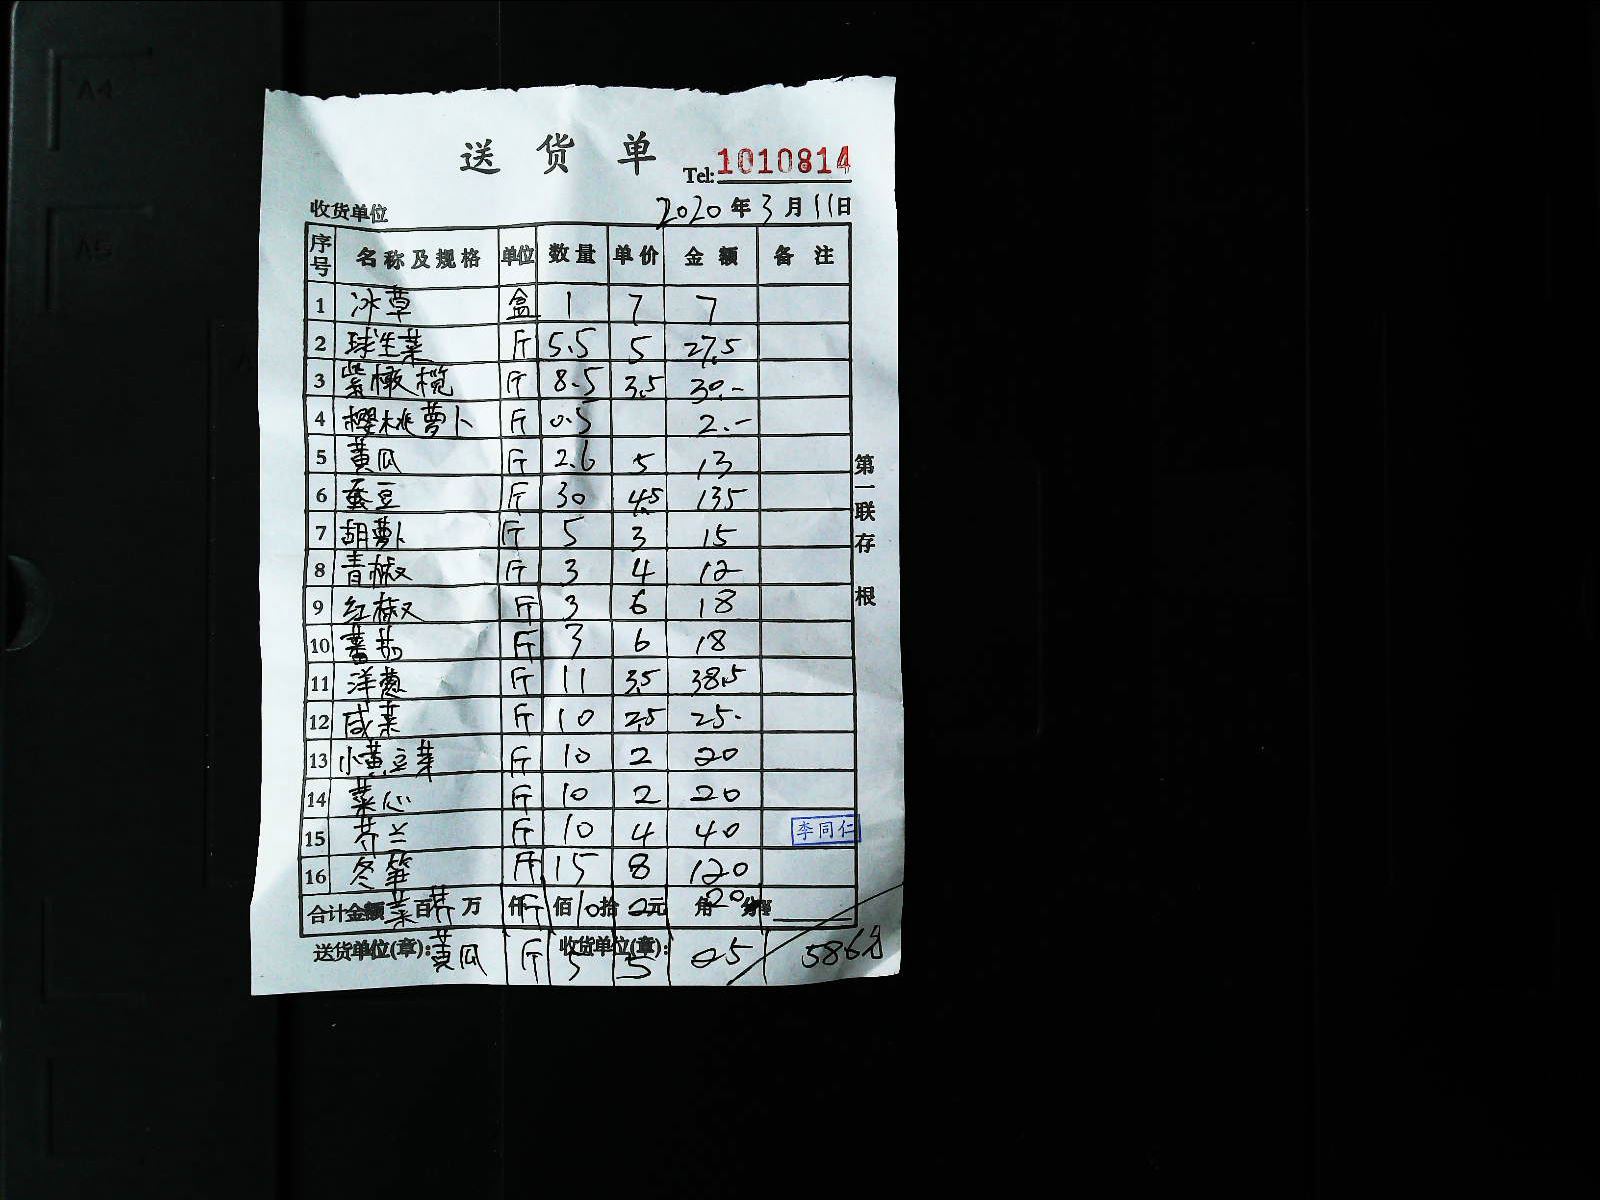 送货单
Tel: 1010814
收货单位 2020年3月11日
序号 名称及规格 单位 数量 单价 金额 备注
1 冰草 盒 1 7 7
2 球生菜 斤 5.5 5 27.5
3 紫橄榄 斤 8.5 3.5 30.-
4 樱桃萝卜 斤 0.5 2.-
5 黄瓜 斤 2.6 5 13
6 蚕豆 斤 30 4.5 135
7 胡萝卜 斤 5 3 15
8 青椒 斤 3 4 12
9 红椒 斤 3 6 18
10 蕃茄 斤 3 6 18
11 洋葱 斤 11 3.5 38.5
12 咸菜 斤 10 2.5 25.
13 小黄豆芽 斤 10 2 20
14 菜心 斤 10 2 20
15 芥兰 斤 10 4 40 李同仁
16 冬笋 斤 15 8 120
合计金额 百 万 仟 佰 拾 元 角 分
斤 10 2 20
送货单位(章): 收货单位(章):
黄瓜 斤 5 5 25 586元
第一联 存根